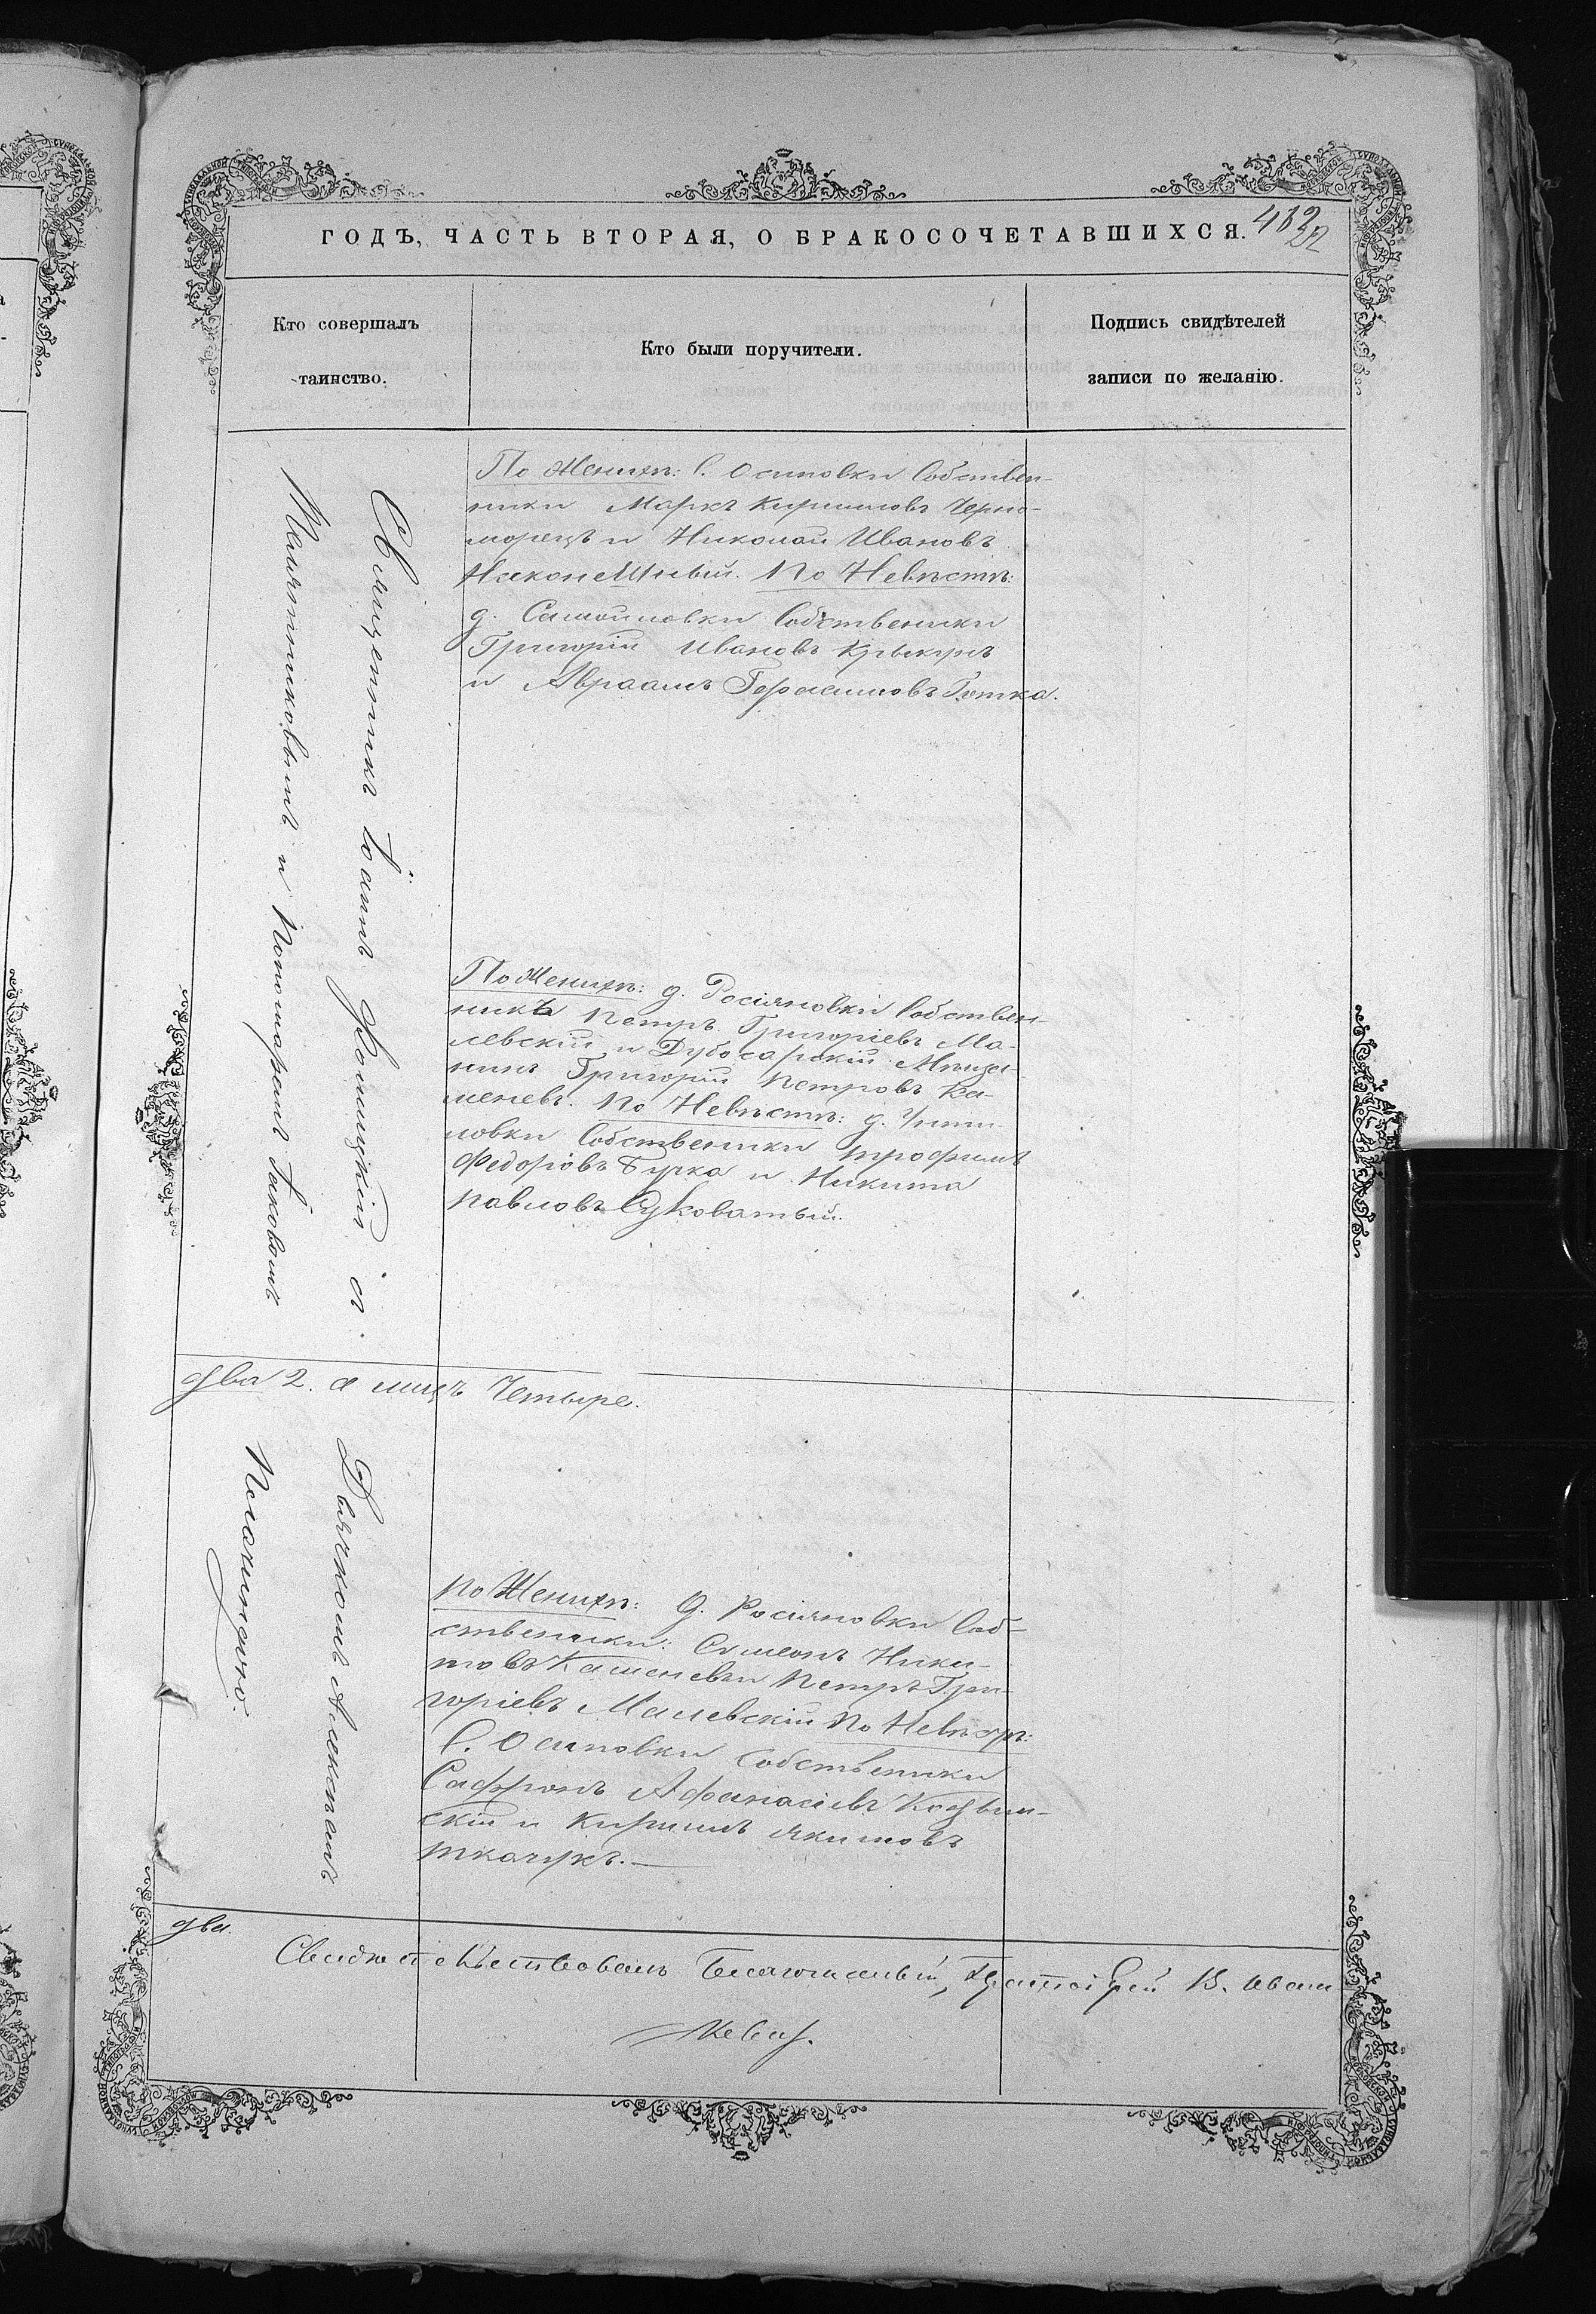 ГОДЪ, ЧАСТЬ ВТОРАЯ, О БРАКОСОЧЕТАВШИХСЯ.
Кто совершалъ
таинство.
Кто были поручители.
Подпись свидѣтелей
записи по желанію.
Священникъ Іоаннъ съ
и Пономаремъ Іаковомъ
По Женихѣ: С. Осиповки Собствен-
ники Маркъ Кирилловъ Черно-
морецъ и Николай Ивановъ
По Невѣстѣ:
д. Самойловки Собственики
Григорій Ивановъ Крыкунъ
и Авраамъ Герасимовъ
По Женихѣ: д. Росіяновки Собствен-
никъ Петръ Григоріевъ Ма-
левскій и Дубосарскій Мѣща-
нинъ Григорій Петровъ Ка-
меневъ. По Невѣстѣ: д.
ловки Собственики Трофимъ
Федоровъ Бурка и Никита
Павловъ Суковатый.
два 2. а лицъ Четыре.
Дьячкомъ Алексѣемъ
по Женихѣ: д. Росіяновки Соб-
ственики: Симеонъ Ники-
товъ Каменевъ и Петръ Гри-
горіевъ Малевскій По Невѣстѣ:
С. Осиповки Собственики
Софронъ Афанасіевъ
скій и Кириллъ Якимовъ
Ткачукъ.—
два.
Свидѣтельствовалъ Благочинный, Протоіерей В.